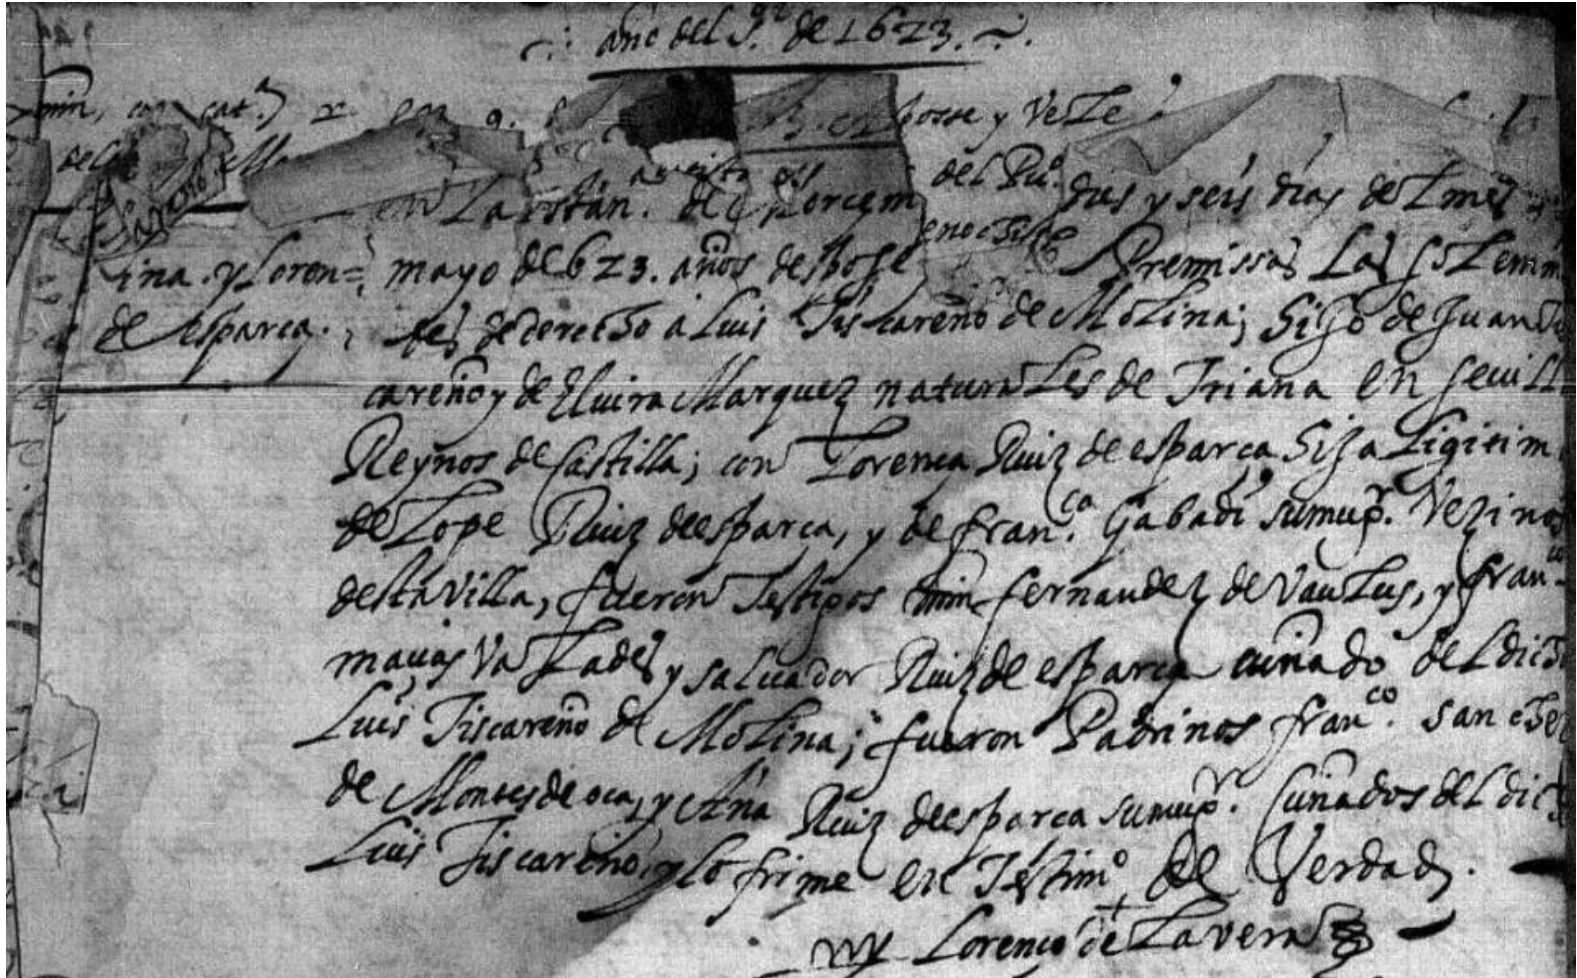 año del S.ʳ de 1623.
posse y Veze
en la están. de del Pu.º dies y seis dias del mes
ina. y Loren= mayo de 623. años despose Premissas las solem
de esparça. des de derecho a Luis Tiscareño de Molina; hijo de Juan
careño y de Eluira Marquez naturales de Triana en seuill
Reynos de Castilla; con Lorença Ruiz de esparça hija ligitim
de Lope Ruiz de esparça, y de fran.ᶜᵃ Gabadi su mup.ʳ Vezinos
desta Villa, fueron Testigos mĩn fernandez de Vaulus, y fran.ᶜᵒ
maçias Valades y saluador Ruiz de esparça cuñado del dicho
Luis Tiscareño de Molina; fueron Padrinos fran.ᶜᵒ sanchez
de Montes de oca, y Ana Ruiz de esparça su mup.ʳ Cuñados del dicho
Luis Tiscareño, y lo frime en Testim.º de Verdad.
Lorenço de La vera